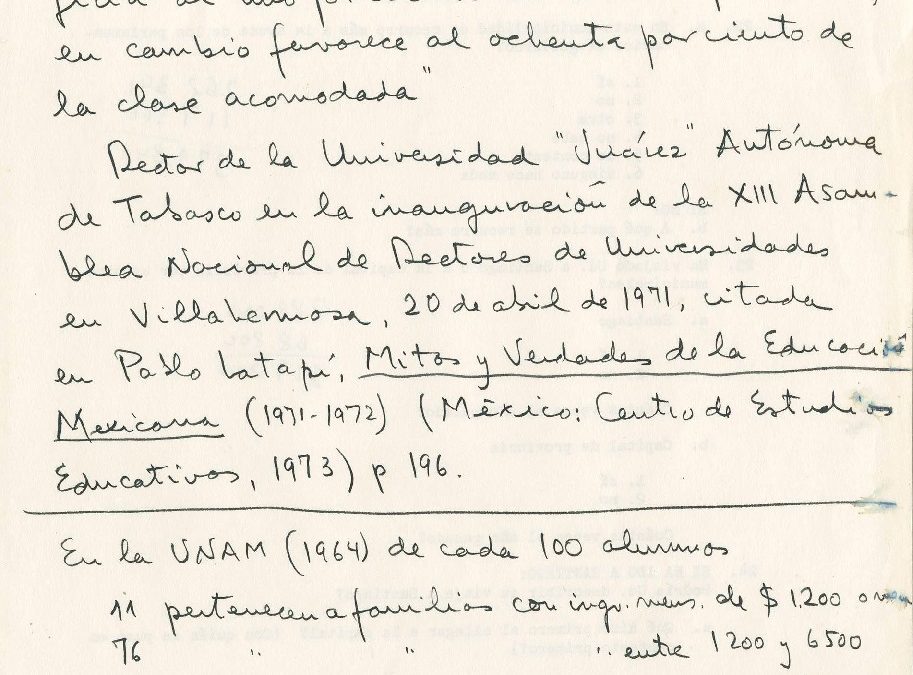 en cambio favorece al ochenta por ciento de
la clase acomodada"
Rector de la Universidad "Juárez" Autónoma
de Tabasco en la inauguración de la XIII Asam-
blea Nacional de Rectores de Universidades
en Villahermosa, 20 de abril de 1971, citada
en Pablo Latapí, Mitos y Verdades de la Educación
Mexicana (1971-1972) (México: Centro de Estudios
Educativos, 1973) p 196.
En la UNAM (1964) de cada 100 alumnos
11 pertenecen a familias con ingr. mens. de $1.200 o
76 " " " entre 1200 y 6500